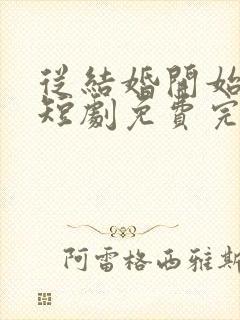 從結婚開始
短劇免費完
阿雷格西雅斯